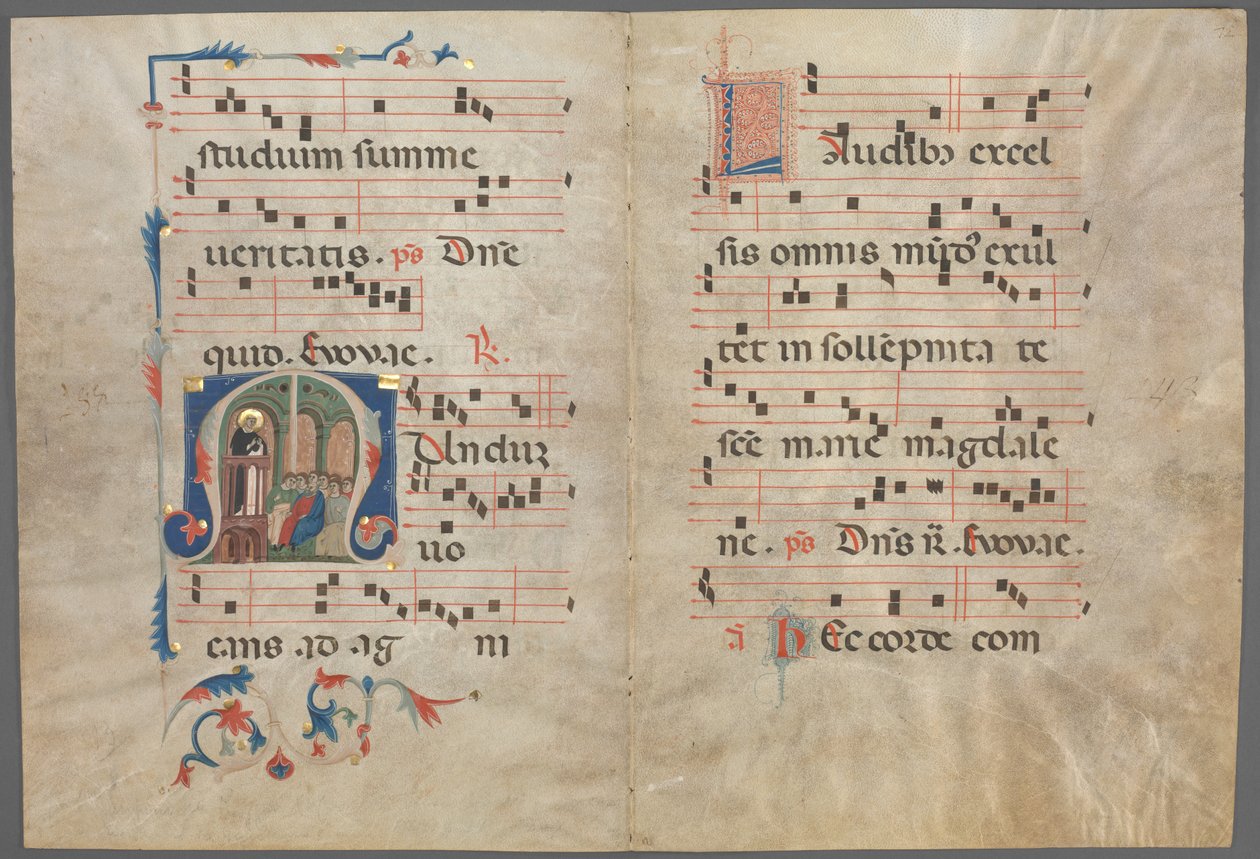 studium summe
ueritatis. ps̄ Dn̄e
quid. Evovae. R̃.
Mundum
uo
cans ad ag ni
Laudib3 excel
sis omnis mūd9 exul
tet in sollēpnita te
sc̄e marie magdale
ne. ps̄ Dn̄s r̃. Evovae.
ā hEc corde com